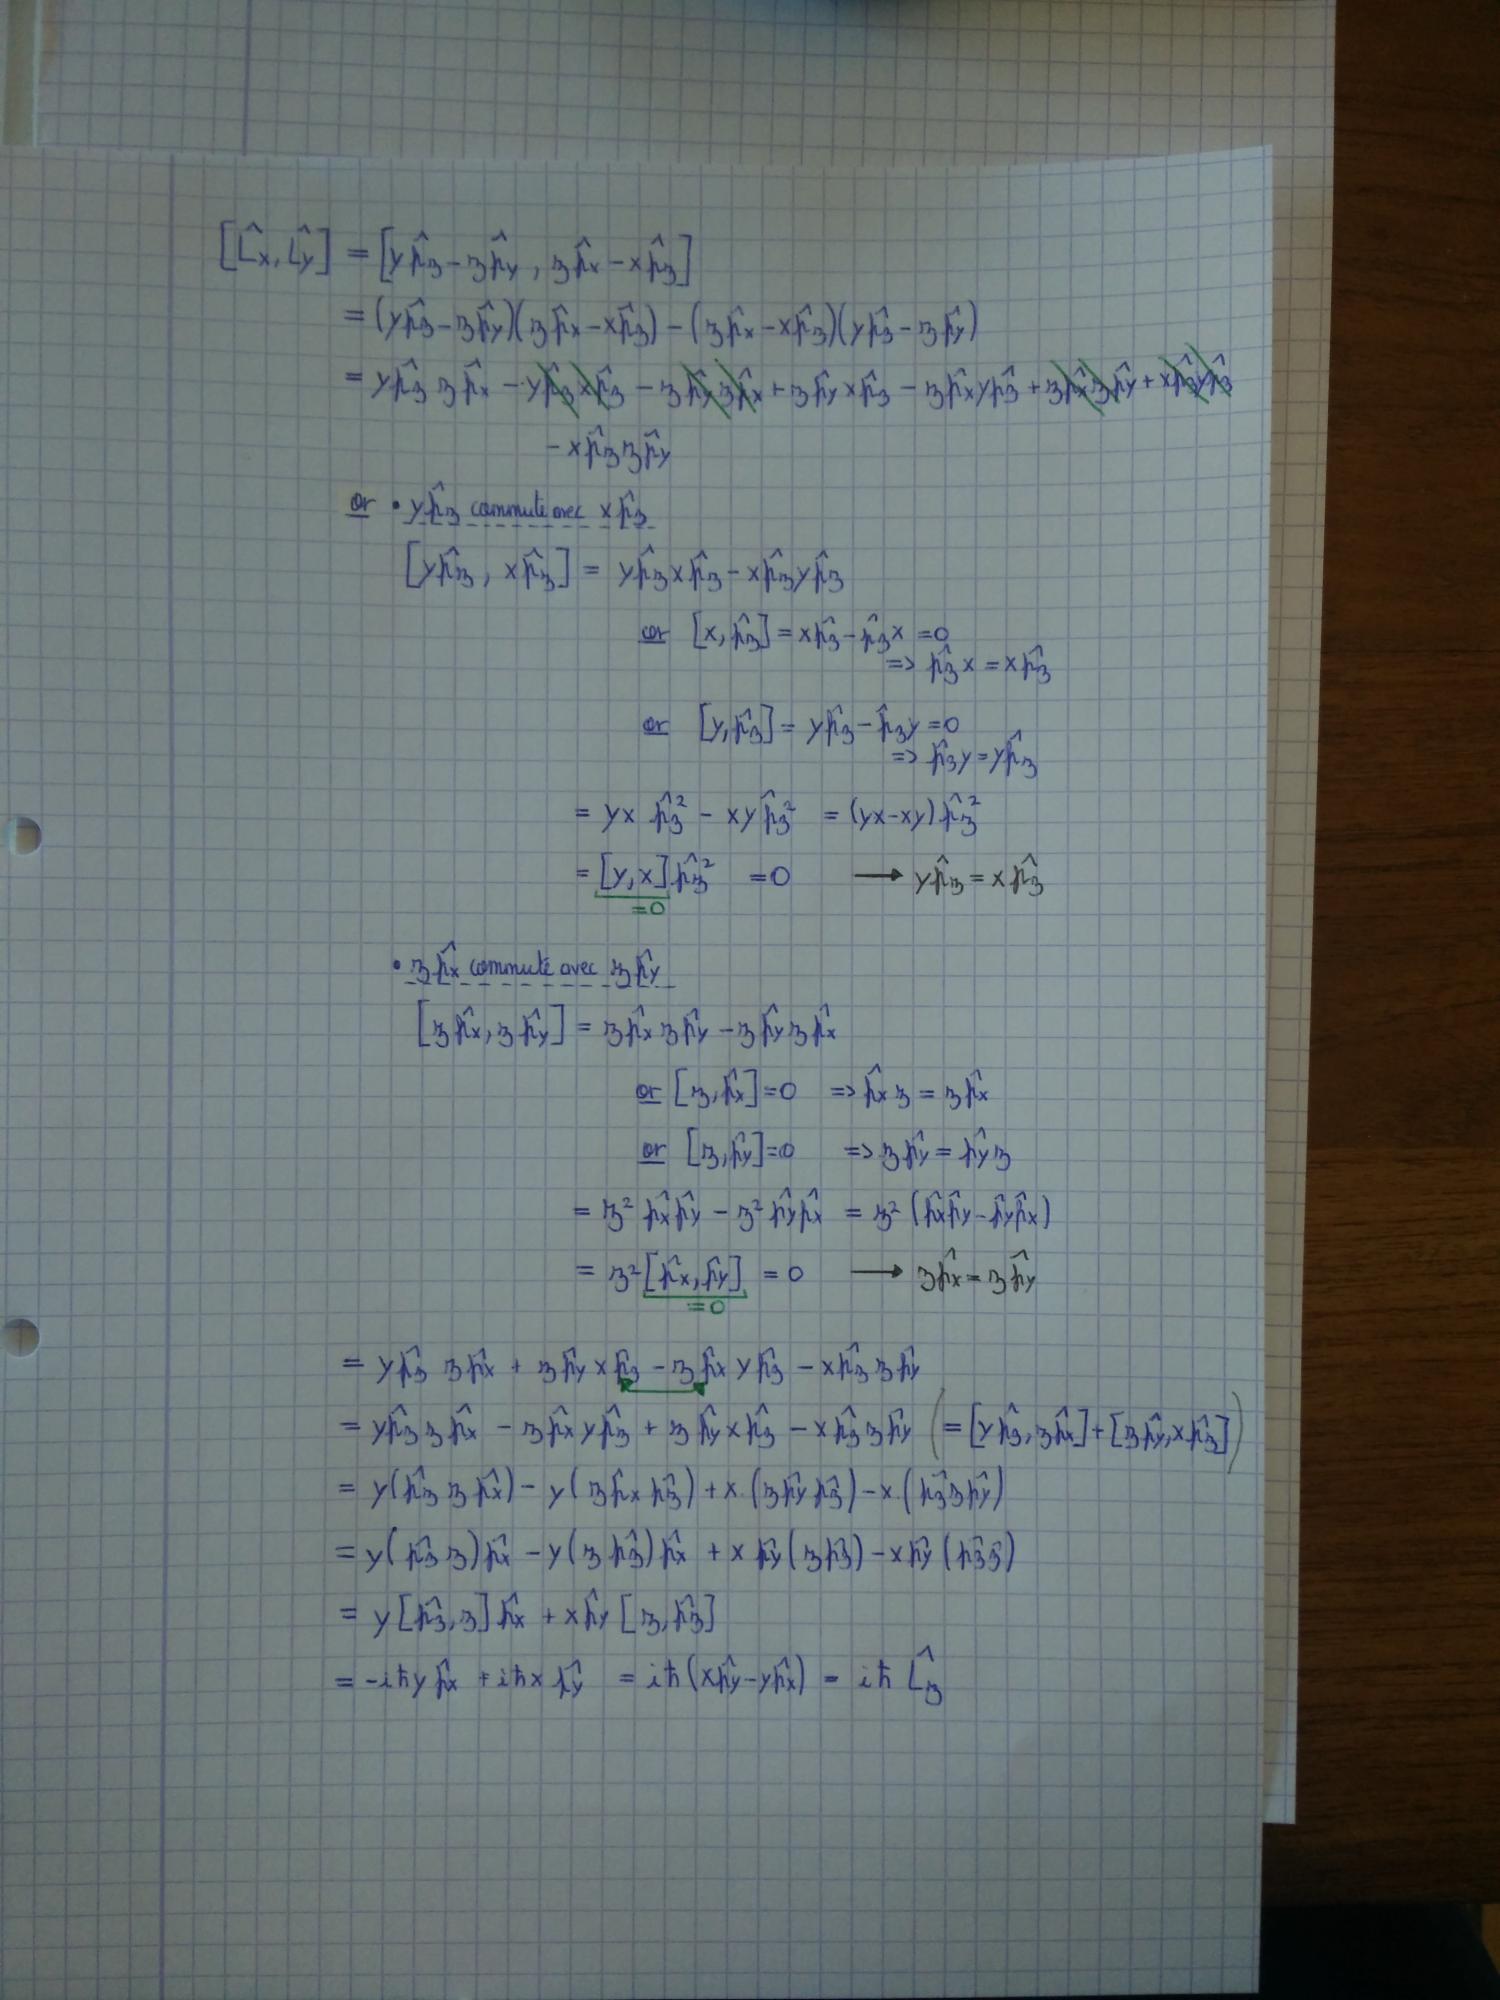 [L̂x, L̂y] = [yp̂z − zp̂y , zp̂x − xp̂z]
= (yp̂z − zp̂y)(zp̂x − xp̂z) − (zp̂x − xp̂z)(yp̂z − zp̂y)
= yp̂z zp̂x − yp̂z xp̂z − zp̂y zp̂x + zp̂y xp̂z − zp̂x yp̂z + zp̂x zp̂y + xp̂z yp̂z
− xp̂z zp̂y
or • yp̂z commute avec xp̂z
[yp̂z , xp̂z] = yp̂z xp̂z − xp̂z yp̂z
or [x, p̂z] = xp̂z − p̂z x = 0
=> p̂z x = xp̂z
or [y, p̂z] = yp̂z − p̂z y = 0
=> p̂z y = yp̂z
= yx p̂z² − xy p̂z² = (yx − xy) p̂z²
= [y, x] p̂z² = 0 → yp̂z = xp̂z
= 0
• zp̂x commute avec zp̂y
[zp̂x, zp̂y] = zp̂x zp̂y − zp̂y zp̂x
or [z, p̂x] = 0 => p̂x z = zp̂x
or [z, p̂y] = 0 => zp̂y = p̂y z
= z² p̂x p̂y − z² p̂y p̂x = z² (p̂x p̂y − p̂y p̂x)
= z² [p̂x, p̂y] = 0 → zp̂x = zp̂y
= 0
= yp̂z zp̂x + zp̂y xp̂z − zp̂x yp̂z − xp̂z zp̂y
= yp̂z zp̂x − zp̂x yp̂z + zp̂y xp̂z − xp̂z zp̂y (= [yp̂z, zp̂x] + [zp̂y, xp̂z])
= y(p̂z zp̂x) − y(zp̂x p̂z) + x(zp̂y p̂z) − x(p̂z zp̂y)
= y(p̂z z)p̂x − y(zp̂z)p̂x + xp̂y(zp̂z) − xp̂y(p̂z z)
= y[p̂z, z]p̂x + xp̂y[z, p̂z]
= −iħyp̂x + iħxp̂y = iħ(xp̂y − yp̂x) = iħ L̂z